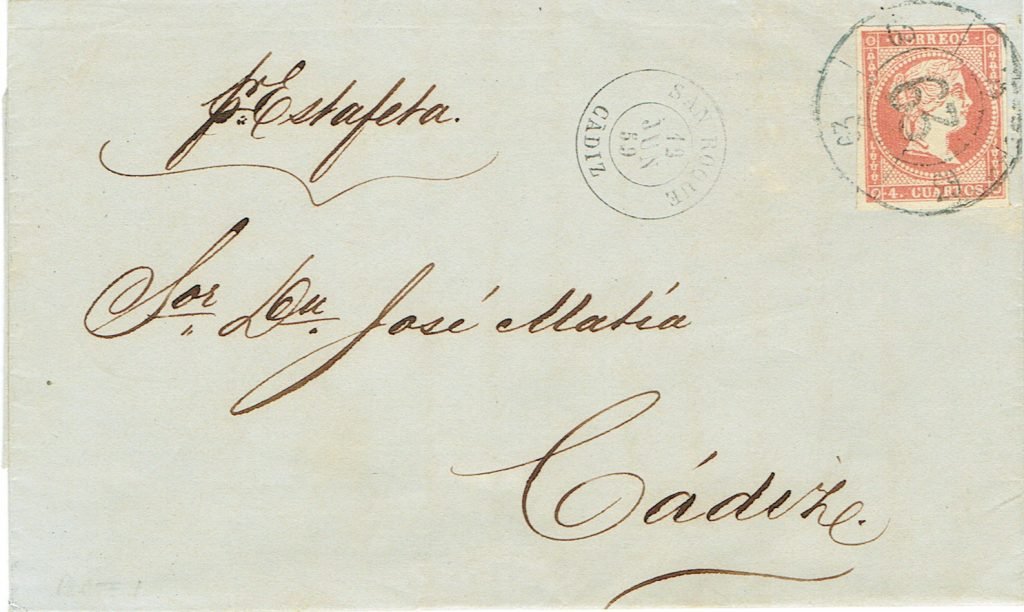 pr. Estafeta.
SAN ROQUE
19
JUN
59
CADIZ
CORREOS
63
63
63
4. CUARTOS
Sor. Dn. José Matía
Cádiz.